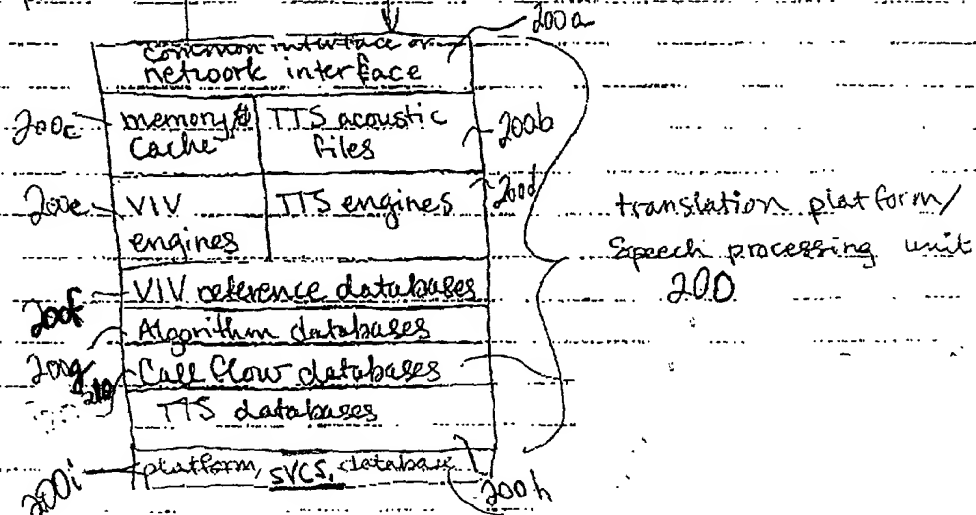 200a
common interface or
network interface
200c
memory &
Cache
TTS acoustic
files
200b
200e
VIV
engines
TTS engines
200d
translation platform/
Speech processing unit
200
200f
VIV reference databases
Algorithm databases
200g
Call Flow databases
TTS databases
200i
platform, SVCS, database
200h